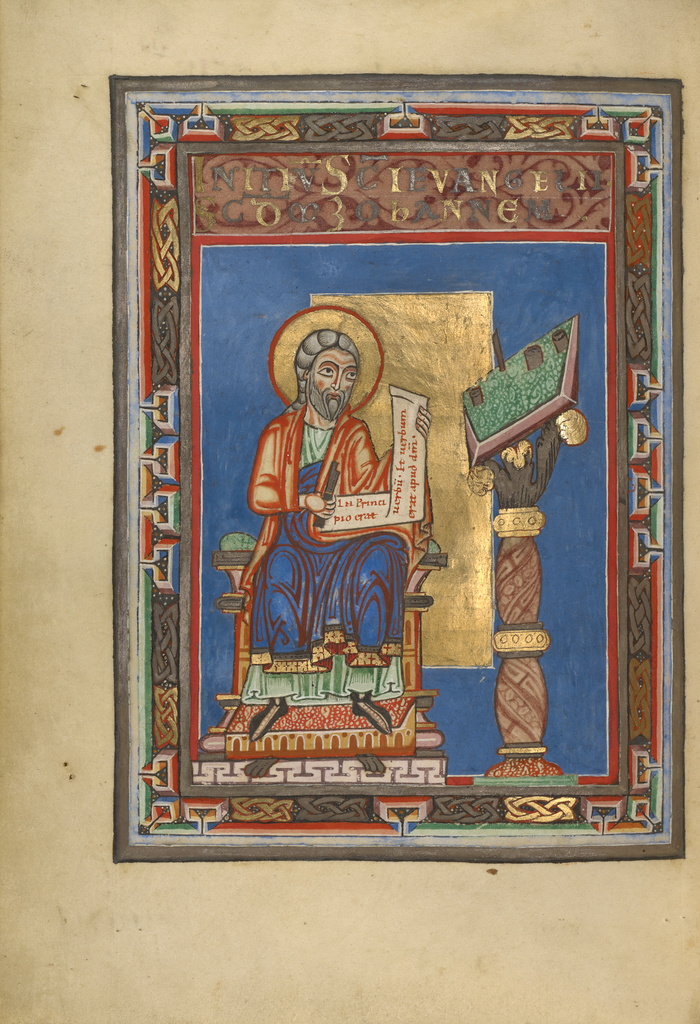 INITIV̄ SC̄I EVANGELII
SCD̄M IOhANNEM
In Princi
pio erat
uerbū· Et uerbum
erat apud dm̄·